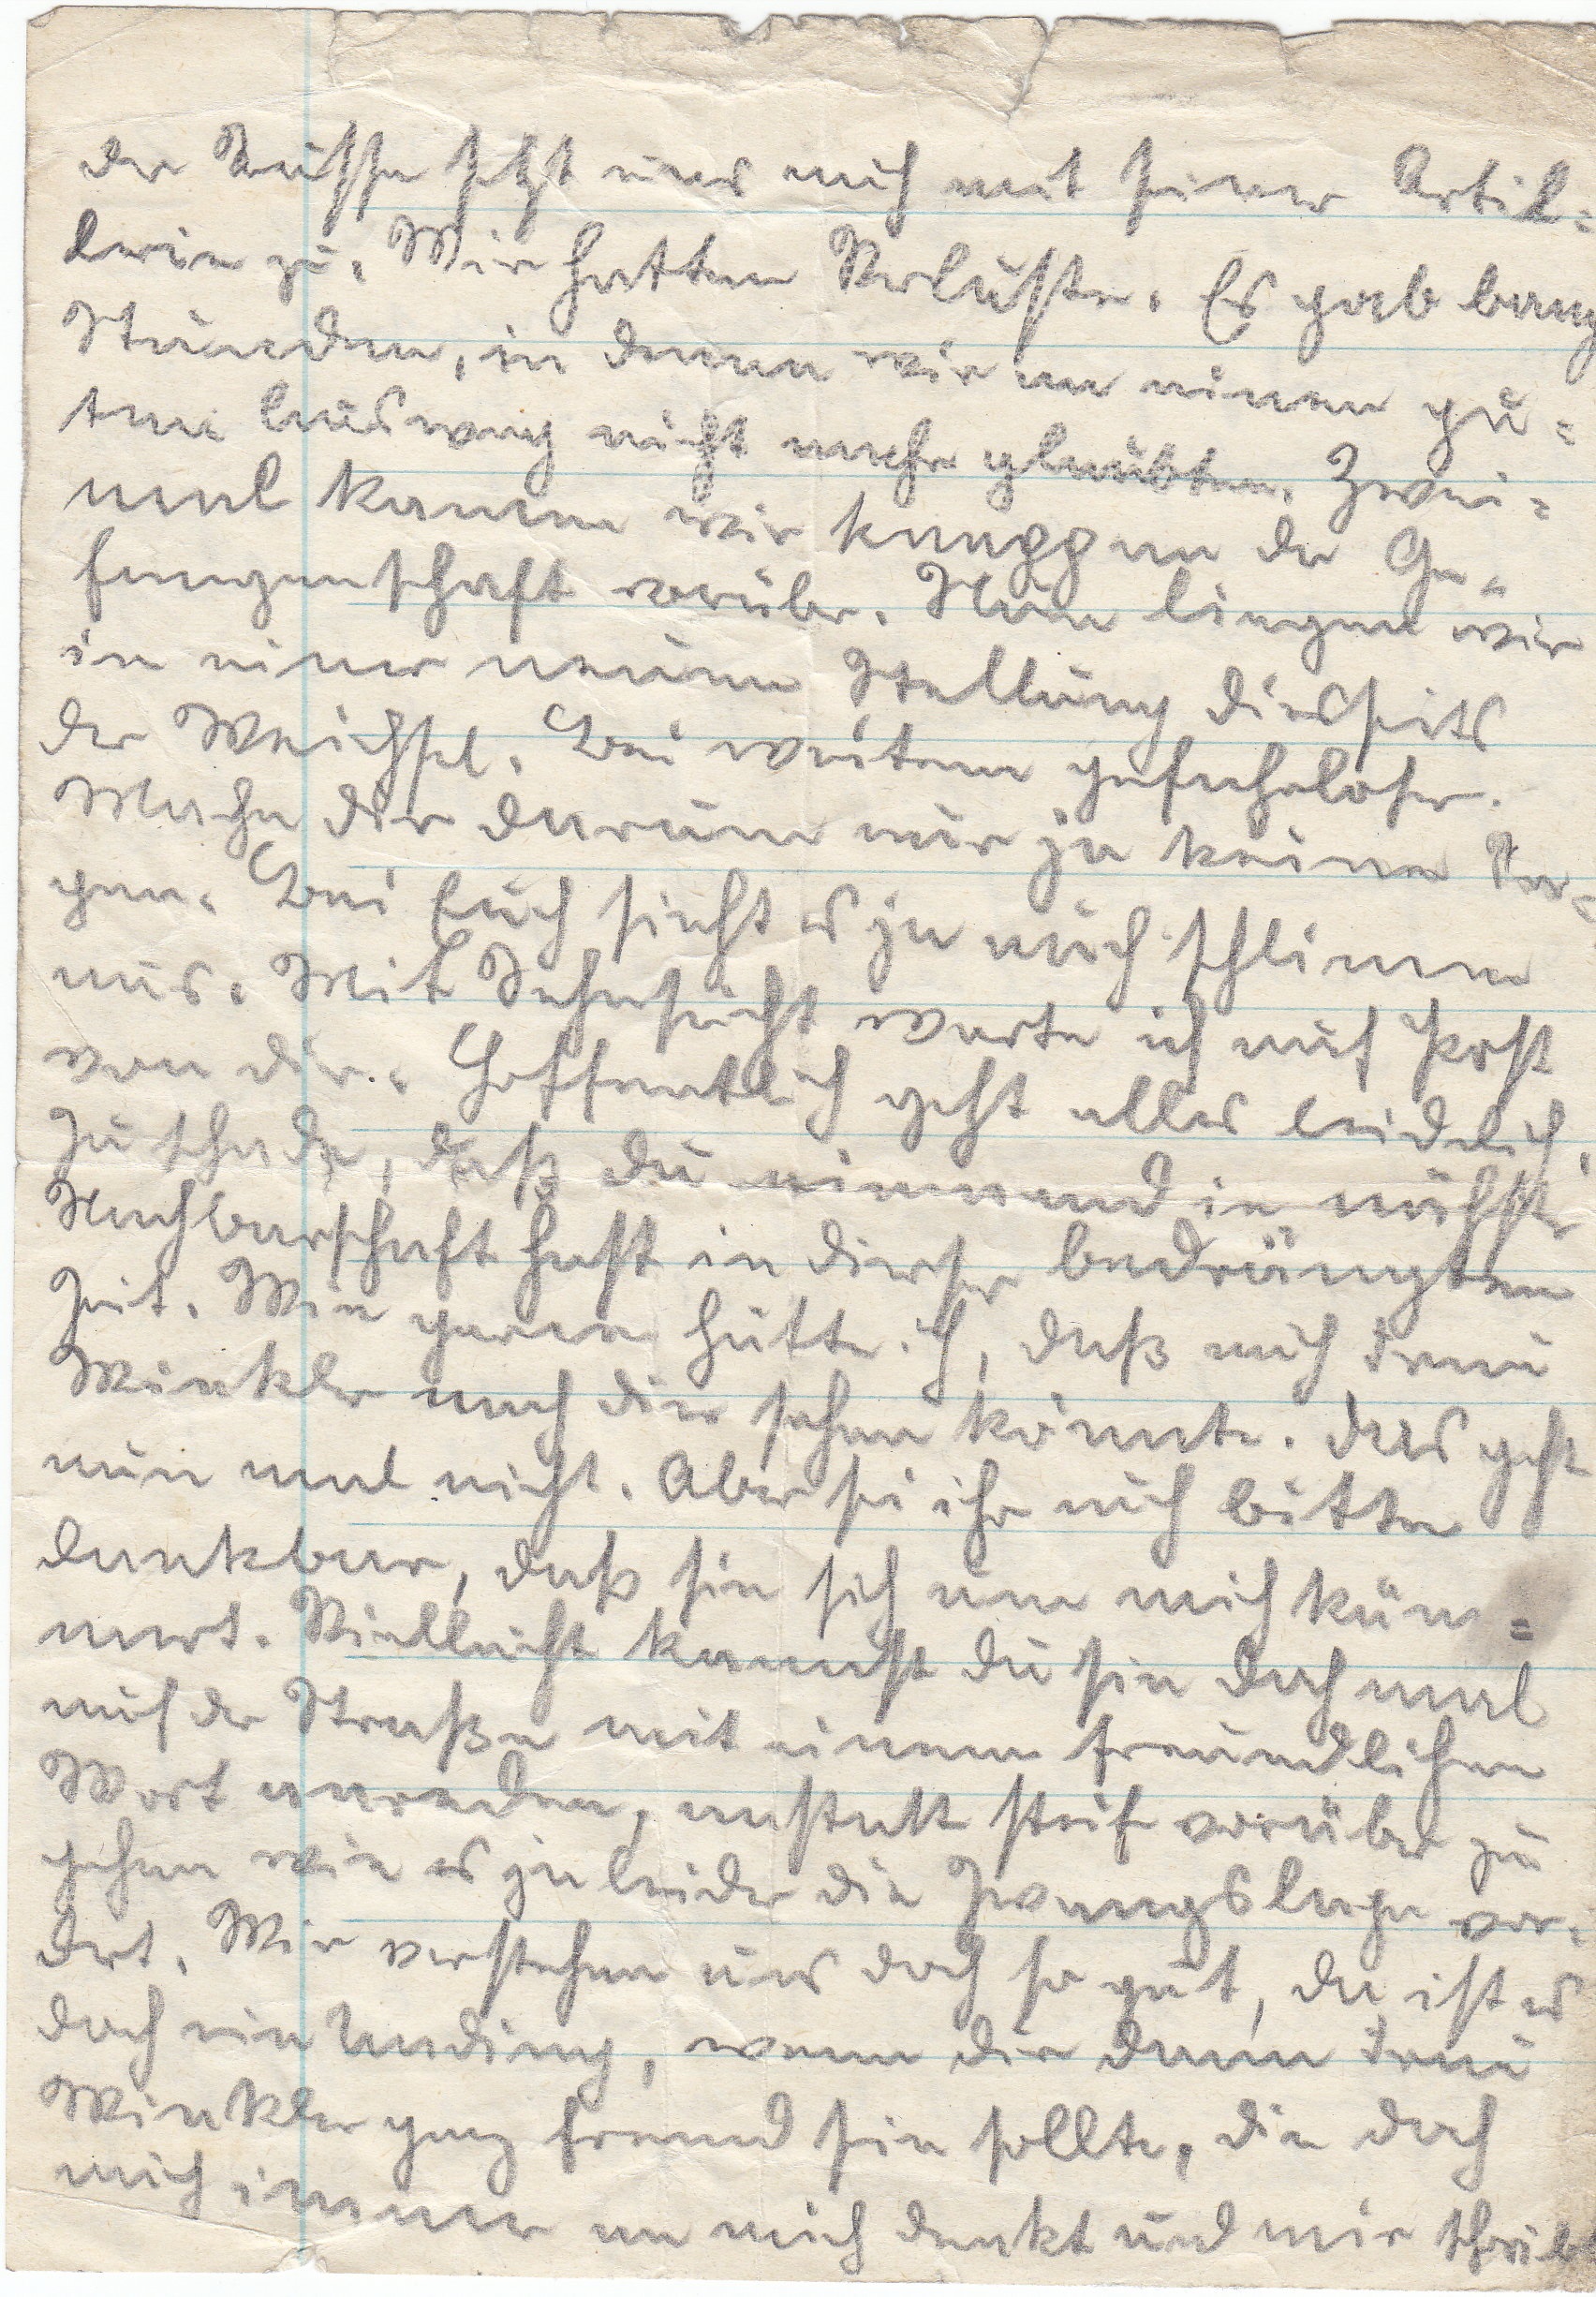 der Russe setzt uns auch mit seiner Artil=
lerie zu. Wir hatten Verluste. Es gab bange
Stunden, in denen wir an einen gu=
ten Ausweg nicht mehr glaubten. Zwei=
mal kamen wir knapp an der Ge=
fangenschaft vorüber. Nun liegen wir
in einer neuen Stellung diesseits
der Weichsel. Bei weitem gefahrloser.
Mache dir darum nur ja keine Sor=
gen. Bei Euch sieht es ja auch schlimm
aus. Mit Sehnsucht warte ich auf Post
von dir. Hoffentlich geht alles leidlich.
Zu schade, daß du niemand in nächster
Nachbarschaft hast in dieser bedrängten
Zeit. Wie gerne hätte ich, daß auch Frau
Winkler nach dir sehen könnte. Das geht
nun mal nicht. Aber sei ihr auch bitte
dankbar, daß sie sich um mich küm=
mert. Vielleicht kannst du sie doch mal
auf der Straße mit einem freundlichen
Wort anreden, anstatt steif vorüber zu
gehen wie es ja leider die Zwangslage vor=
dert. Wir verstehen uns doch so gut, da ist es
doch ein Unding, wenn dir dann Frau
Winkler ganz fremd sein sollte, die doch
auch immer an mich denkt und mir schreibt